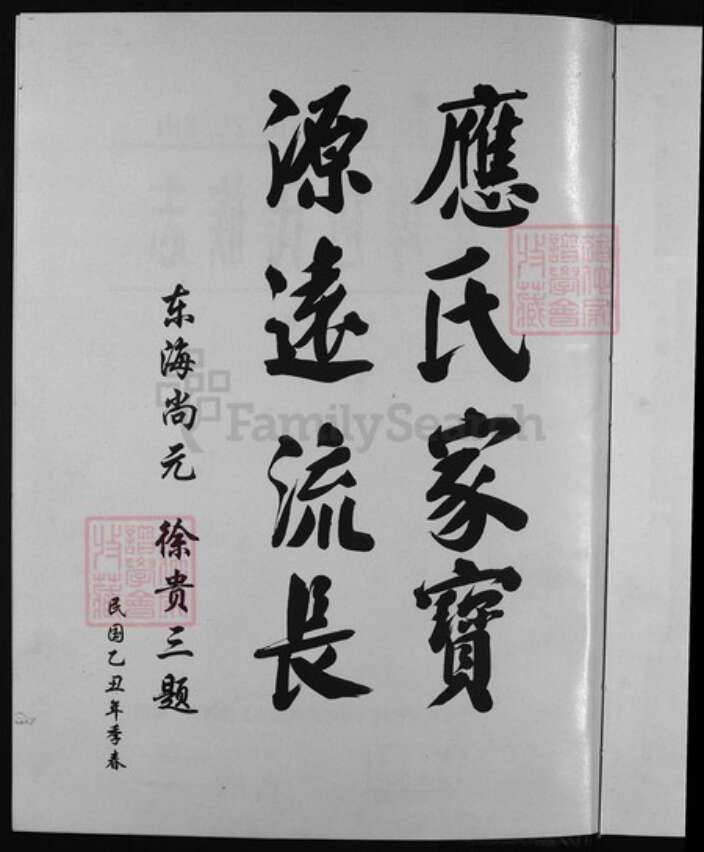 應氏家寶
源遠流長
东海尚元 徐贵三题
民国乙丑年季春
FamilySearch